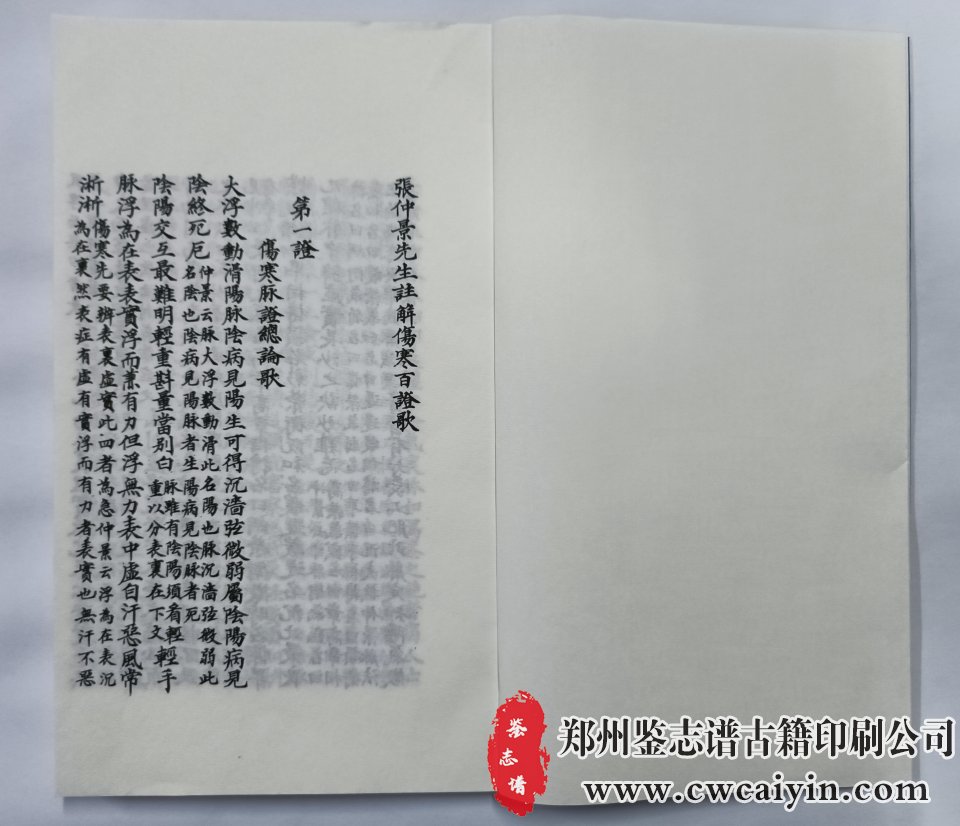 張仲景先生註解傷寒百證歌
第一證
傷寒脉證總論歌
大浮數動滑陽脉陰病見陽生可得沉濇弦微弱屬陰陽病見
陰終死厄仲景云脉大浮數動滑此名陽也脉沉濇弦微弱此
名陰也陰病見陽脉者生陽病見陰脉者死
陰陽交互最難明輕重斟量當别白脉雖有陰陽須看輕
重以分表裏在下文輕手
脉浮為在表表實浮而兼有力但浮無力表中虛自汗惡風常
淅淅傷寒先要辨表裏虛實此四者為急仲景云浮為在表沉
為在裏然表症有虛有實浮而有力者表實也無汗不惡
鉴志谱
郑州鉴志谱古籍印刷公司
www.cwcaiyin.com